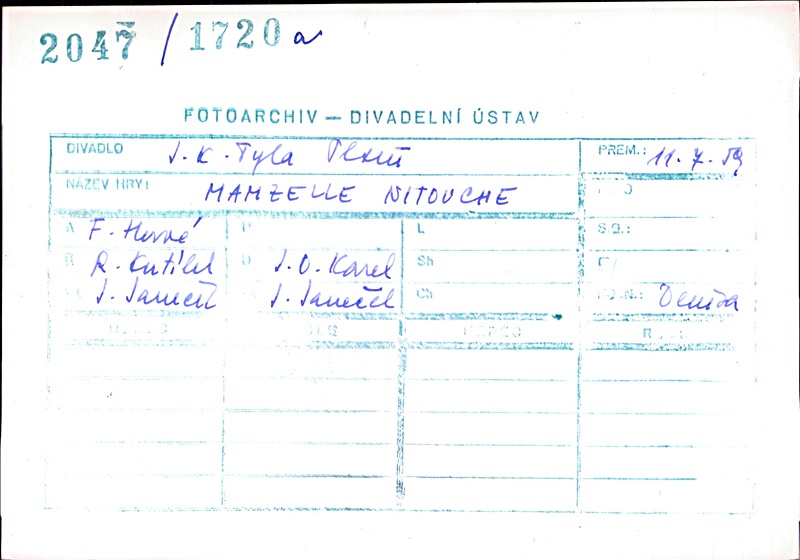 2047 / 1720 a
FOTOARCHIV — DIVADELNÍ ÚSTAV
DIVADLO J. K. Tyla Plzeň PREM.: 11. 7. 59
NÁZEV HRY: MAMZELLE NITOUCHE
A F. Hervé L S.Q.:
R R. Kutílek J. O. Karel Sh
J. Janeček J. Janeček Ch